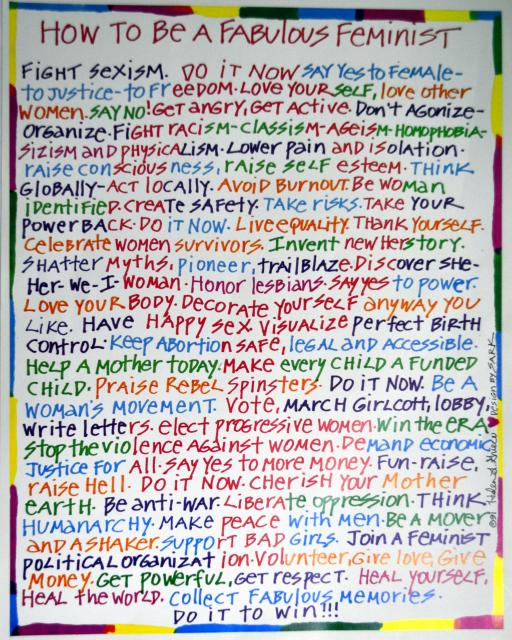 HOW TO BE A FABULOUS FEMINIST
FIGHT SEXISM. DO IT NOW SAY YES TO FEMALE-
TO JUSTICE-TO FREEDOM. LOVE YOUR SELF, LOVE OTHER
WOMEN. SAY NO! GET ANGRY, GET ACTIVE. DON'T AGONIZE-
ORGANIZE. FIGHT RACISM-CLASSISM-AGEISM-HOMOPHOBIA-
SIZISM AND PHYSICALISM. LOWER PAIN AND ISOLATION.
RAISE CONSCIOUSNESS, RAISE SELF ESTEEM. THINK
GLOBALLY-ACT LOCALLY. AVOID BURNOUT. BE WOMAN
IDENTIFIED. CREATE SAFETY. TAKE RISKS. TAKE YOUR
POWER BACK. DO IT NOW. LIVE EQUALITY. THANK YOURSELF.
CELEBRATE WOMEN SURVIVORS. INVENT NEW HERSTORY.
SHATTER MYTHS, PIONEER, TRAILBLAZE. DISCOVER SHE-
HER-WE-I-WOMAN. HONOR LESBIANS. SAY YES TO POWER.
LOVE YOUR BODY. DECORATE YOURSELF ANYWAY YOU
LIKE. HAVE HAPPY SEX. VISUALIZE PERFECT BIRTH
CONTROL. KEEP ABORTION SAFE, LEGAL AND ACCESSIBLE.
HELP A MOTHER TODAY. MAKE EVERY CHILD A FUNDED
CHILD. PRAISE REBEL SPINSTERS. DO IT NOW. BE A
WOMAN'S MOVEMENT. VOTE, MARCH GIRLCOTT, LOBBY.
WRITE LETTERS. ELECT PROGRESSIVE WOMEN. WIN THE ERA.
STOP THE VIOLENCE AGAINST WOMEN. DEMAND ECONOMIC
JUSTICE FOR ALL. SAY YES TO MORE MONEY. FUN-RAISE,
RAISE HELL. DO IT NOW. CHERISH YOUR MOTHER
EARTH. BE ANTI-WAR. LIBERATE OPPRESSION. THINK
HUMANARCHY. MAKE PEACE WITH MEN. BE A MOVER
AND A SHAKER. SUPPORT BAD GIRLS. JOIN A FEMINIST
POLITICAL ORGANIZATION. VOLUNTEER, GIVE LOVE, GIVE
MONEY. GET POWERFUL, GET RESPECT. HEAL YOURSELF,
HEAL THE WORLD. COLLECT FABULOUS MEMORIES.
DO IT TO WIN!!!
DESIGN BY SARK